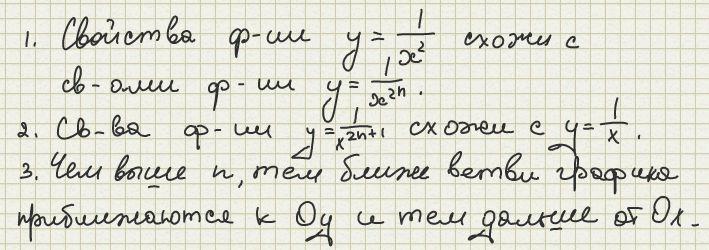 1. Свойства ф-ии y = 1/x² схожи с
св-ами ф-ии y = 1/x²ⁿ.
2. Св-ва ф-ии y = 1/x²ⁿ⁺¹ схожи с y = 1/x.
3. Чем выше n, тем ближе ветви графика
приближаются к Oy и тем дальше от Ox.